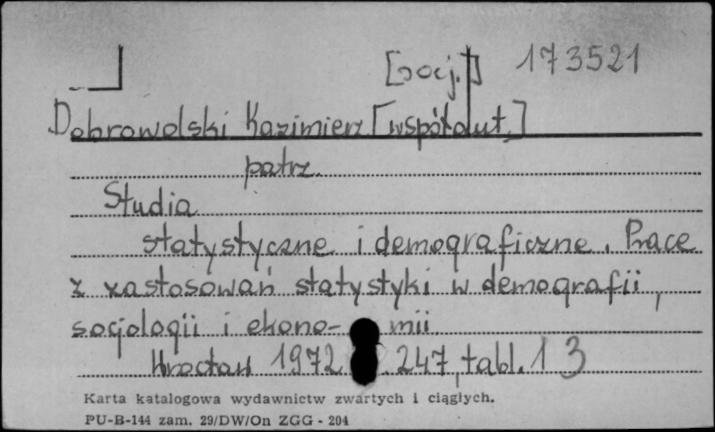 [socj.] 173521
Dobrowolski Kazimierz [współaut.]
patrz
Studia
statystyczne i demograficzne. Prace
z zastosowań statystyki w demografii,
socjologii i ekono- mii
Wrocław 1972 . 247, tabl. 13
Karta katalogowa wydawnictw zwartych i ciągłych.
PU-B-144 zam. 29/DW/On ZGG - 204